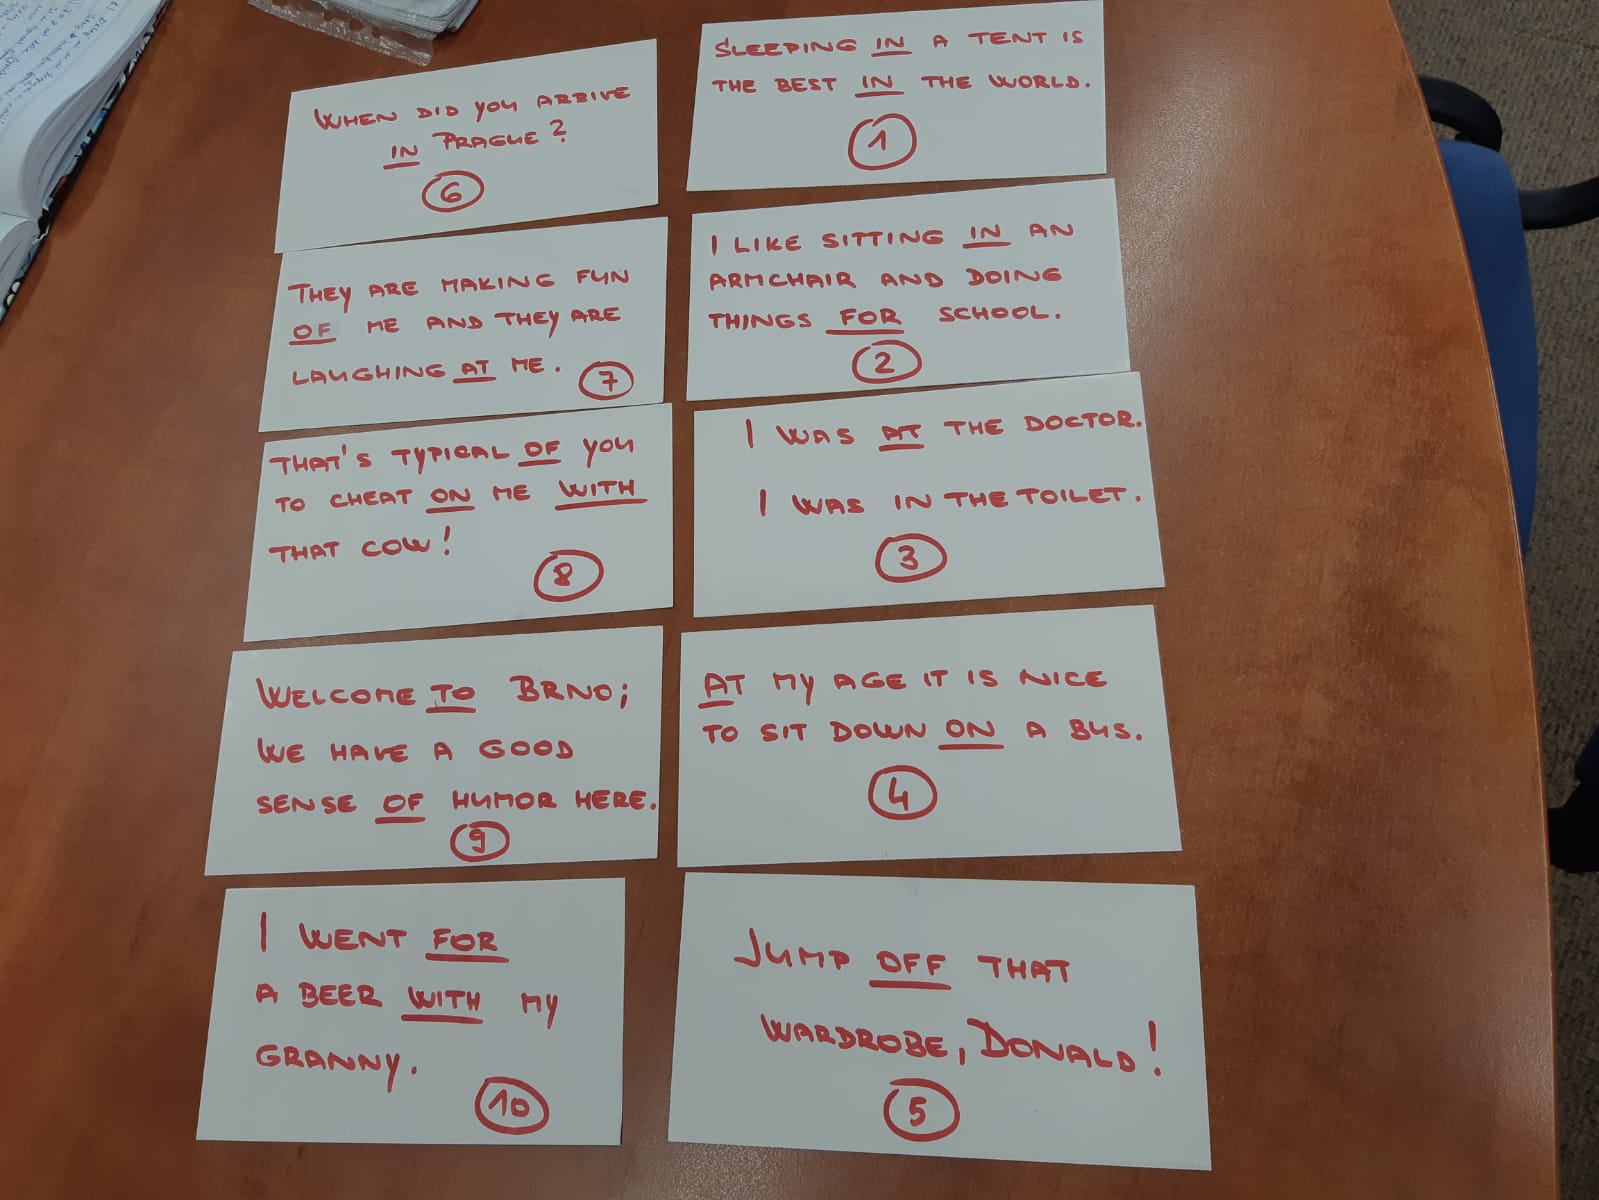 SLEEPING IN A TENT IS
THE BEST IN THE WORLD.
1
I LIKE SITTING IN AN
ARMCHAIR AND DOING
THINGS FOR SCHOOL.
2
I WAS AT THE DOCTOR.
I WAS IN THE TOILET.
3
AT MY AGE IT IS NICE
TO SIT DOWN ON A BUS.
4
JUMP OFF THAT
WARDROBE, DONALD!
5
WHEN DID YOU ARRIVE
IN PRAGUE?
6
THEY ARE MAKING FUN
OF ME AND THEY ARE
LAUGHING AT ME.
7
THAT'S TYPICAL OF YOU
TO CHEAT ON ME WITH
THAT COW!
8
WELCOME TO BRNO;
WE HAVE A GOOD
SENSE OF HUMOR HERE.
9
I WENT FOR
A BEER WITH MY
GRANNY.
10